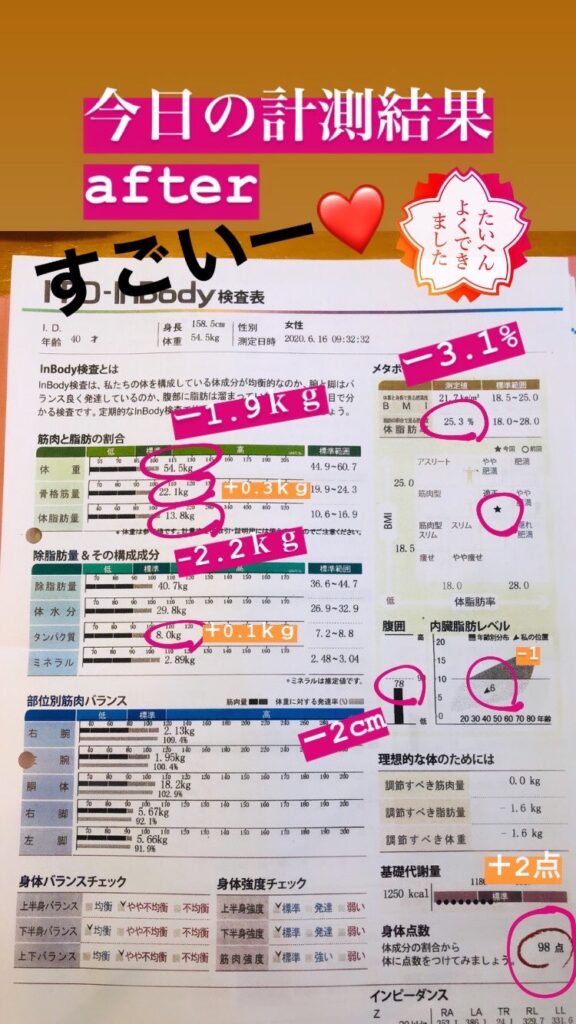 今日の計測結果
after
すごいー
たいへん
よくでき
ました
InBody 検査表
I. D.
年齢 40 才
身長 158.5cm
体重 54.5kg
性別 女性
測定日時 2020.6.16 09:32:32
InBody検査とは
InBody検査は、私たちの体を構成している体成分が均衡的なのか、腕と脚はバ
ランス良く発達しているのか、腹部に脂肪は溜まってい
分かる検査です。定期的なInBody検査で
しょう。
-1.9kg
筋肉と脂肪の割合
低 標準 高 標準範囲
体重 54.5kg 44.9~60.7
骨格筋量 22.1kg +0.3kg 19.9~24.3
体脂肪量 13.8kg 10.6~16.9
-2.2kg
除脂肪量&その構成成分
低 標準 高 標準範囲
除脂肪量 40.7kg 36.6~44.7
体水分 29.8kg 26.9~32.9
タンパク質 8.0kg +0.1kg 7.2~8.8
ミネラル 2.89kg 2.48~3.04
*ミネラルは推定値です。
部位別筋肉バランス
筋肉量 体重に対する発達率(%)
低 標準 高
右腕 2.13kg
109.4%
腕 1.95kg
100.4%
胴体 18.2kg
102.9%
右脚 5.67kg
92.1%
左脚 5.66kg
91.9%
身体バランスチェック
上半身バランス 均衡 やや不均衡 不均衡
下半身バランス 均衡 やや不均衡 不均衡
上下バランス 均衡 やや不均衡 不均衡
身体強度チェック
上半身強度 標準 発達 弱い
下半身強度 標準 発達 弱い
筋肉強度 標準 強い 弱い
-3.1%
メタボ
測定値 標準範囲
BMI 21.7 kg/m² 18.5~25.0
体脂肪率 25.3 % 18.0~28.0
★今回 ○前回
アスリート やや肥満 肥満
筋肉型 適正 やや肥満
筋肉型スリム スリム 隠れ肥満
痩せ やや痩せ
BMI
25.0
18.5
18.0 28.0
体脂肪率
腹囲
高
78
90
低
-2cm
内臓脂肪レベル
年齢別分布 ▲私の位置
-1
20
15
10
5
0
▲6
20 30 40 50 60 70 80 年齢
理想的な体のためには
調節すべき筋肉量 0.0 kg
調節すべき脂肪量 - 1.6 kg
調節すべき体重 - 1.6 kg
基礎代謝量
+2点
1250 kcal 標準
身体点数
体成分の割合から
体に点数をつけてみましょう。
98 点
インピーダンス
Z RA LA TR RL LL